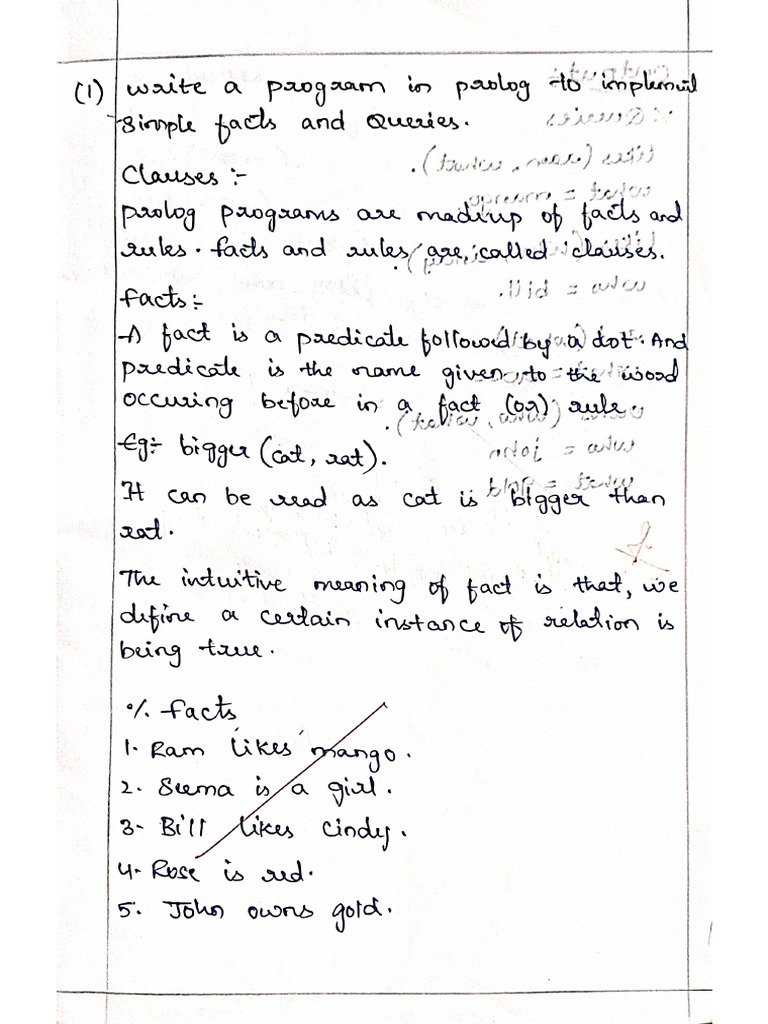 (1) write a program in prolog to implement
simple facts and Queries.
Clauses :-
prolog programs are madeup of facts and
rules. facts and rules are called clauses.
facts :-
A fact is a predicate followed by a dot. And
predicate is the name given to the word
occuring before in a fact (or) rule.
Eg:- bigger (cat, rat).
It can be read as cat is bigger than
rat.
The intuitive meaning of fact is that, we
define a certain instance of relation is
being true.
% facts
1. Ram likes mango.
2. Seema is a girl.
3- Bill likes cindy.
4- Rose is red.
5. John owns gold.